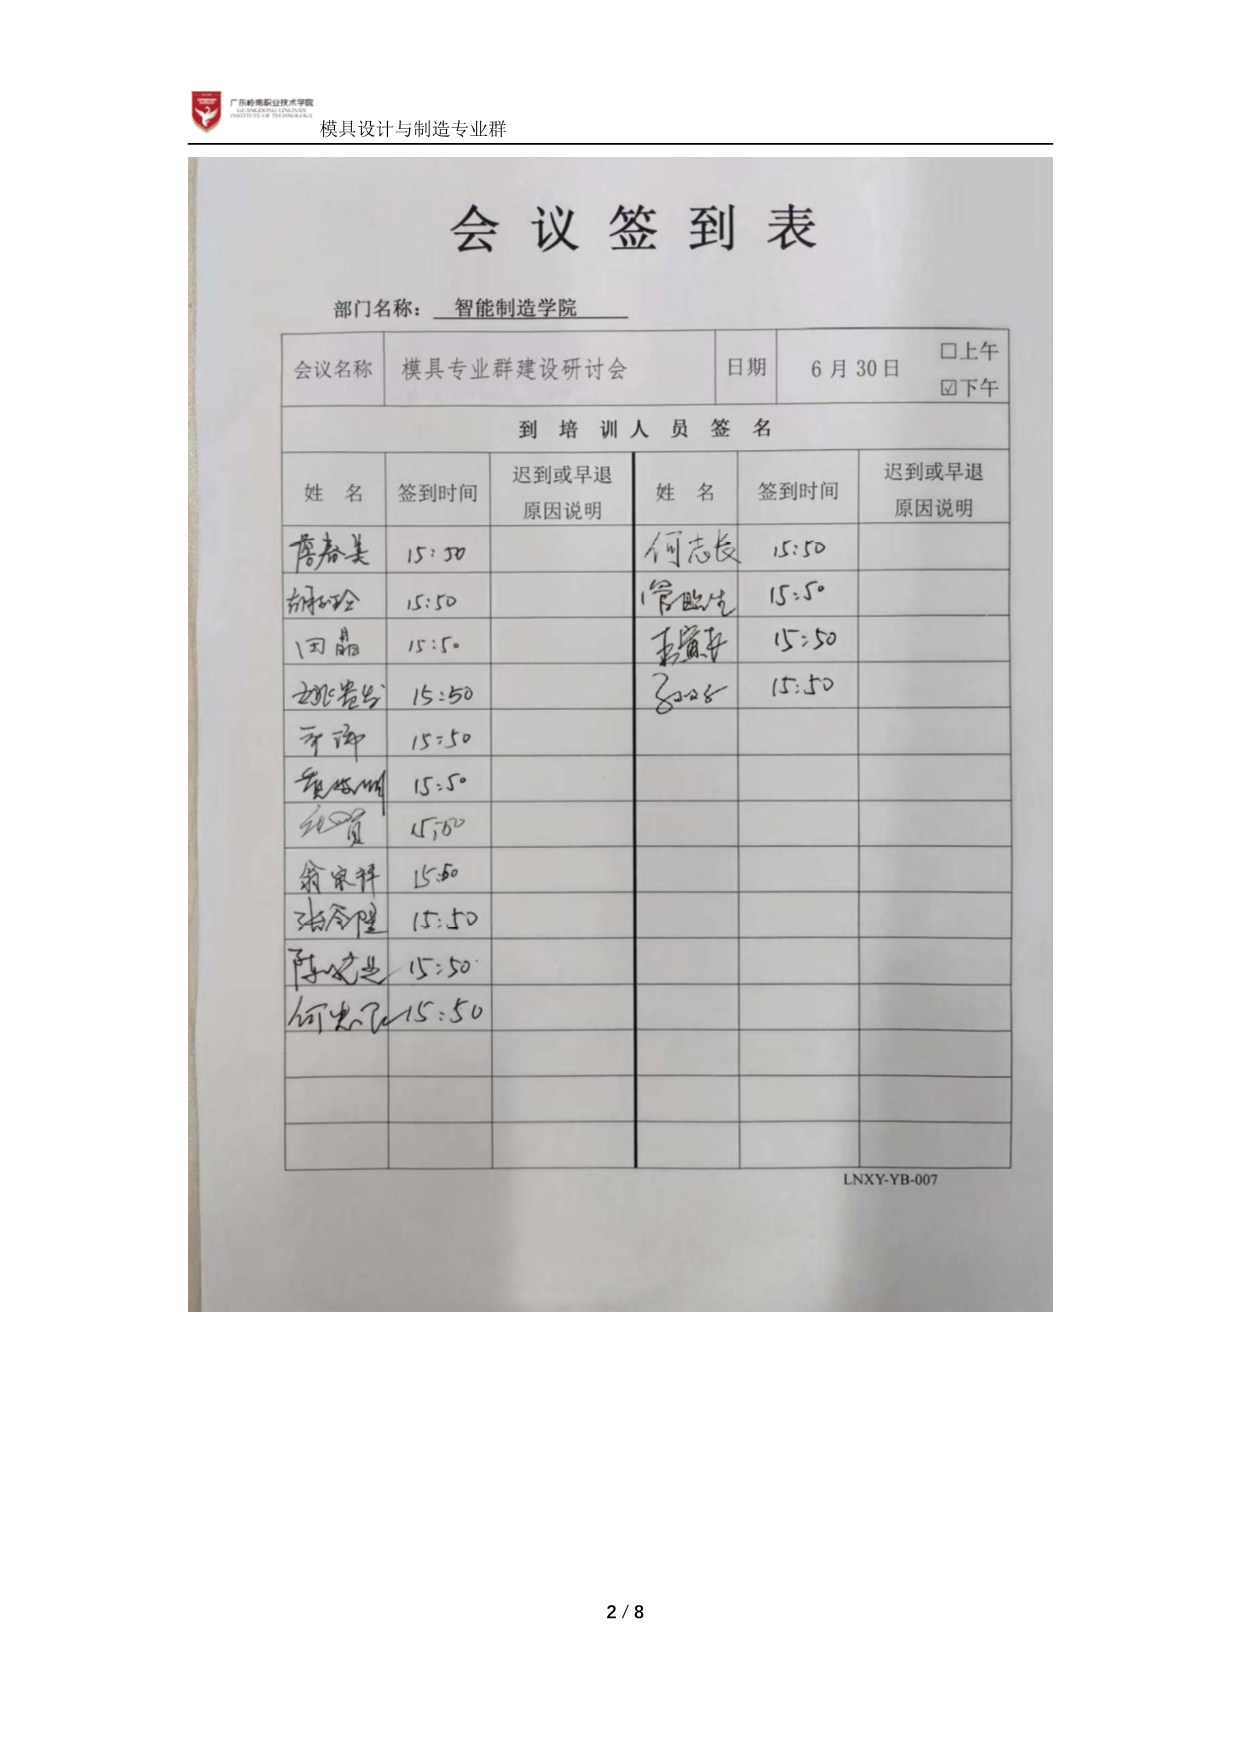 广东岭南职业技术学院
GUANGDONG LINGNAN
INSTITUTE OF TECHNOLOGY
模具设计与制造专业群
会议签到表
部门名称： 智能制造学院
会议名称 模具专业群建设研讨会 日期 6月30日 □上午
☑下午
到培训人员签名
姓 名 签到时间 迟到或早退 姓 名 签到时间 迟到或早退
原因说明 原因说明
春美 15:50 何志长 15:50
15:50 15:50
田晶 15:50 15:50
姚贵 15:50 15:50
15:50
15:50
15:50
翁家祥 15:50
张 15:50
陈 15:50
何 15:50
LNXY-YB-007
2 / 8